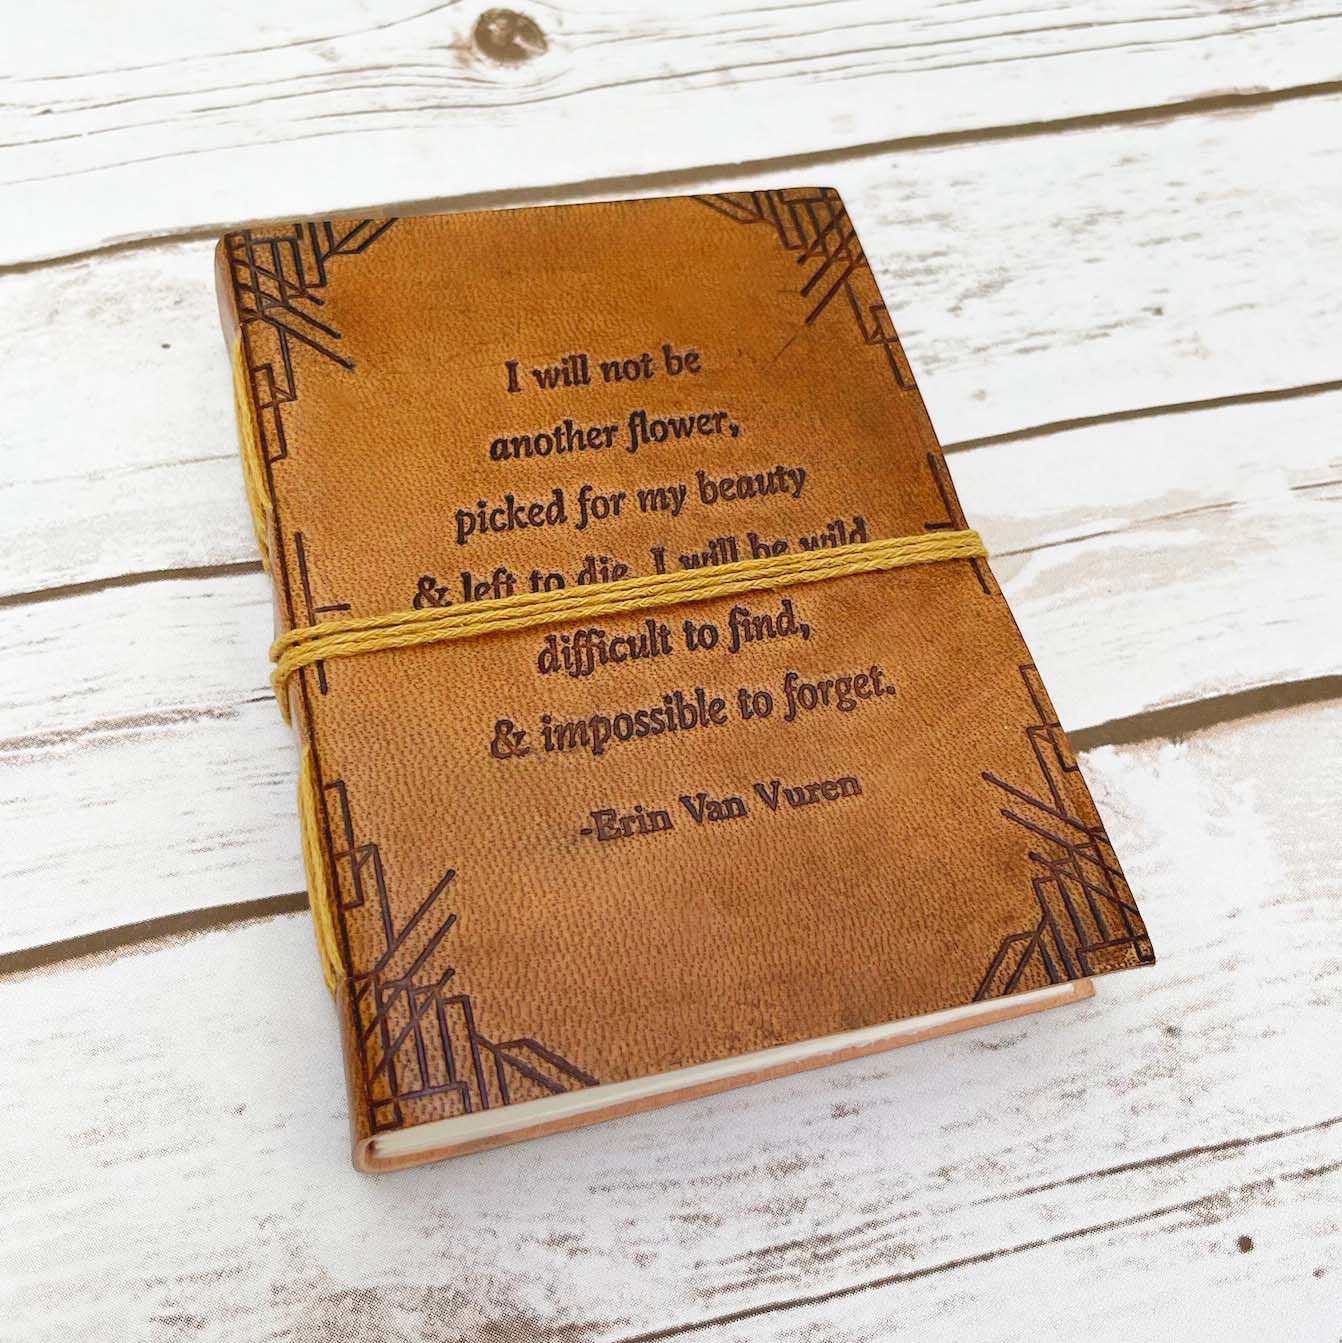 I will not be
another flower,
picked for my beauty
& left to die. I will be wild
difficult to find,
& impossible to forget.
-Erin Van Vuren